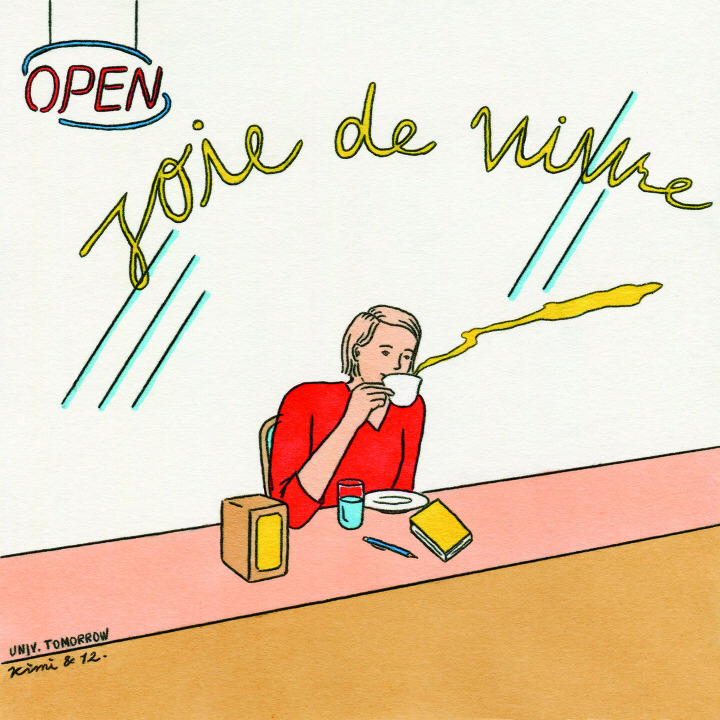 OPEN
joie de vivre
UNIV. TOMORROW
kimi & 12.